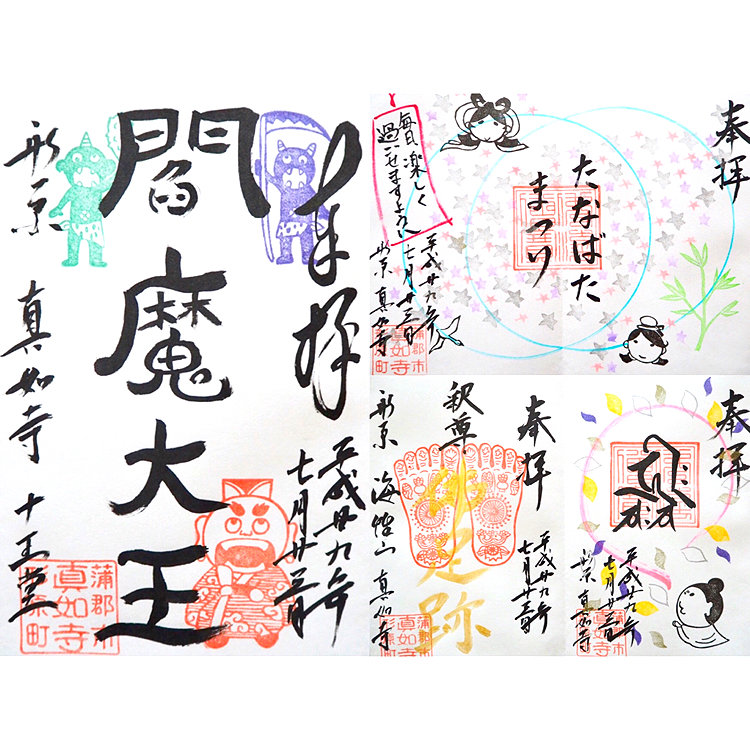 奉拝
閻魔大王
平成廿九年
七月廿三日
形原 真如寺 十王堂
蒲郡市
真如寺
形原町
奉拝
たなばた
まつり
毎日、楽しく
過ごせますように
平成廿九年
七月廿三日
形原 真如寺
蒲郡市
真如寺
形原町
奉拝
釈尊
仏足跡
平成廿九年
七月廿三日
形原 海性山 真如寺
蒲郡市
真如寺
形原町
奉拝
平成廿九年
七月廿三日
形原 真如寺
蒲郡市
真如寺
形原町